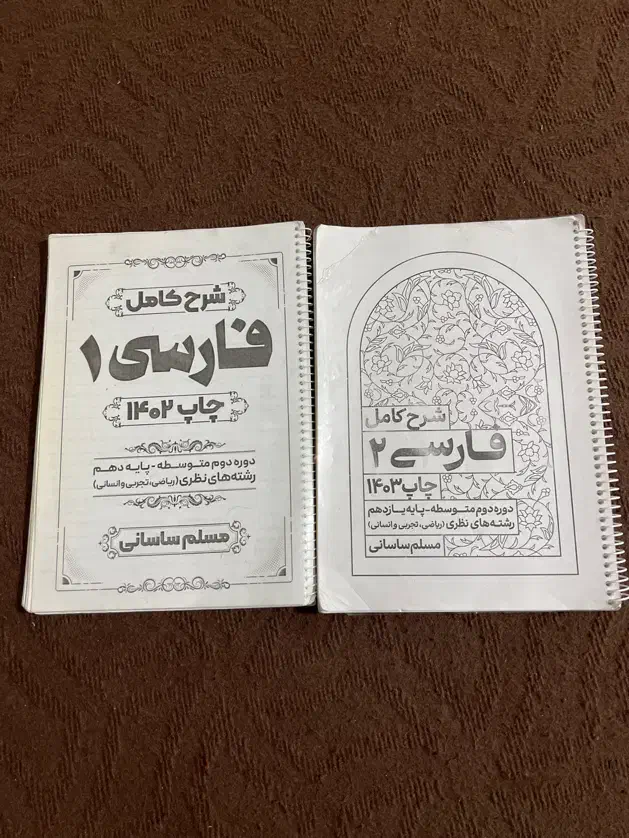 شرح کامل
فارسی ۱
چاپ ۱۴۰۲
دوره دوم متوسطه - پایه دهم
رشته‌های نظری (ریاضی، تجربی و انسانی)
مسلم ساسانی
شرح کامل
فارسی ۲
چاپ ۱۴۰۳
دوره دوم متوسطه - پایه یازدهم
رشته‌های نظری (ریاضی، تجربی و انسانی)
مسلم ساسانی